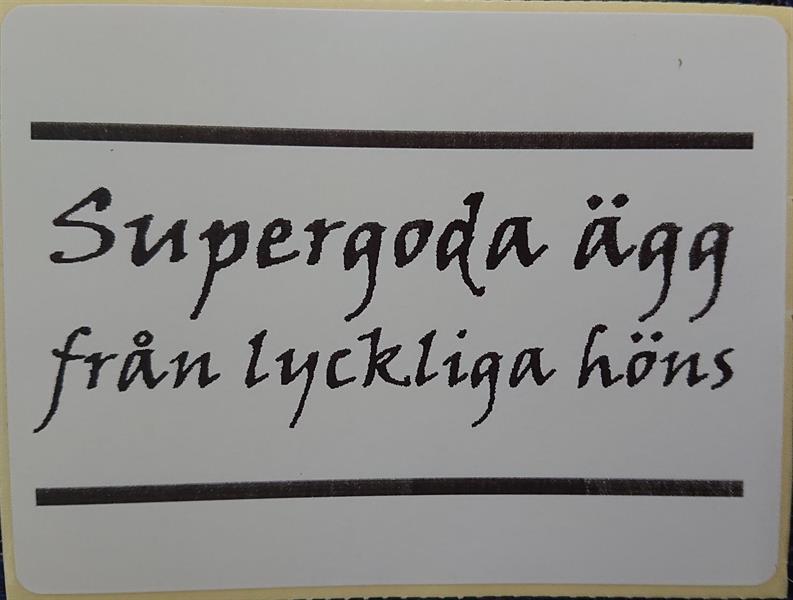 Supergoda ägg
från lyckliga höns